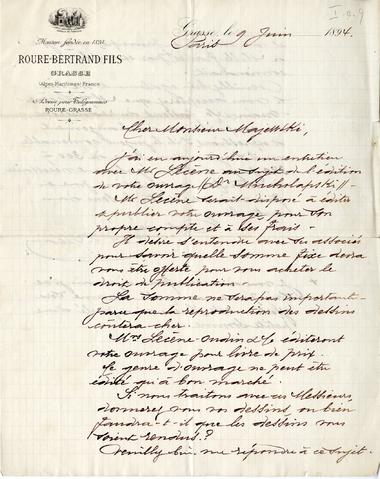 I-9-9
Grasse, le 9 Juin 1894.
Paris
Maison fondée en 1820
ROURE-BERTRAND FILS
GRASSE
(Alpes-Maritimes) France
Adresse pour Télégrammes
ROURE-GRASSE
Cher Monsieur Majewski,
J'ai eu aujourd'hui un entretien
avec Mr Lecène au sujet de l'édition
de votre ouvrage (Dr Muchołapski) -
Mr Lecène serait disposé à éditer
& publier votre ouvrage, pour son
propre compte et à ses frais -
Il désire s'entendre avec ses associés
pour savoir quelle somme fixe devra
vous être offerte pour vous acheter le
droit de publication -
La somme ne sera pas importante
parce que la reproduction des dessins
coûtera cher.
Mrs Lecène Oudin & Cie éditeront
votre ouvrage pour livre de prix.
Ce genre d'ouvrage ne peut être
édité qu'à bon marché.
Si nous traitons avec ces Messieurs,
donnerez vous vos dessins, ou bien
faudra-t-il que les dessins vous
soient rendus?
Veuillez bien me répondre à ce sujet.